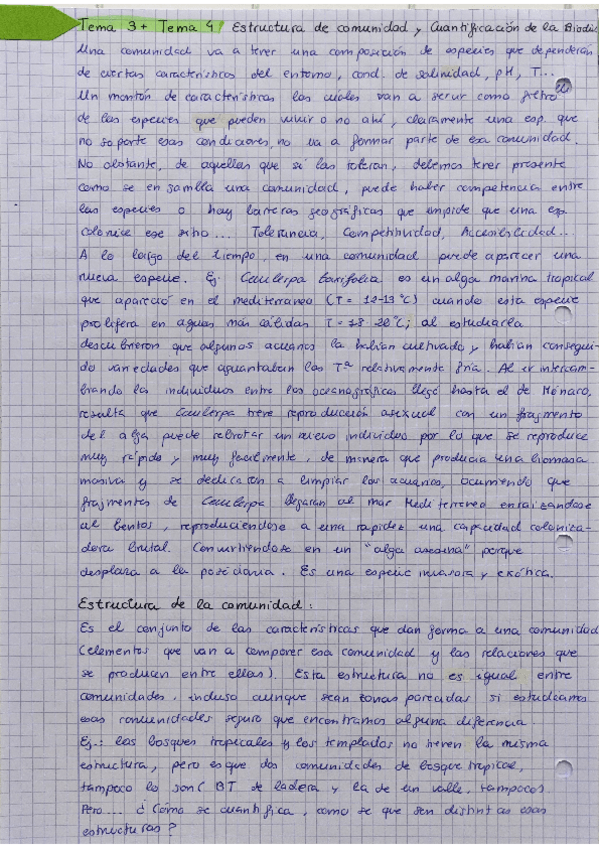 Tema 3 + Tema 4 Estructura de comunidad y Cuantificación de la Biodi
Una comunidad va a tener una composición de especies que dependerán
de ciertas características del entorno, cond. de salinidad, pH, T...
Un montón de características las cuales van a servir como filtro
de las especies que pueden vivir o no ahí, claramente una esp. que
no soporte esas condiciones, no va a formar parte de esa comunidad.
No obstante, de aquellas que sí las toleran, debemos tener presente
como se ensambla una comunidad, puede haber competencia entre
las especies o hay barreras geográficas que impide que una esp.
colonice ese sitio... Tolerancia, Competitividad, Accesibilidad...
A lo largo del tiempo, en una comunidad puede aparecer una
nueva especie. Ej. Caulerpa taxifolia es un alga marina tropical
que apareció en el mediterraneo (T = 12-13 ºC) cuando esta especie
prolifera en aguas más cálidas T = 18-20ºC; al estudiarla
descubrieron que algunos acuarios la habían cultivado y habían consegui-
do variedades que aguantaban las Tª relativamente fría. Al intercam-
biando los individuos entre los oceanográficos llegó hasta el de Mónaco,
resulta que Caulerpa tiene reproducción asexual con un fragmento
del alga puede rebrotar un nuevo individuo por lo que se reproduce
muy rápido y muy facilmente, de manera que producía una biomasa
masiva y se dedicaron a limpiar los acuarios, ocurriendo que
fragmentos de Caulerpa llegaran al mar Mediterraneo enraizandose
al bentos, reproduciendose a una rapidez una capacidad coloniza-
dora brutal. Convirtiendose en un "alga asesina" porque
desplaza a la posidonia. Es una especie invasora y exótica.
Estructura de la comunidad:
Es el conjunto de las características que dan forma a una comunidad
(elementos que van a componer esa comunidad y las relaciones que
se produzcan entre ellas). Esta estructura no es igual entre
comunidades, incluso aunque sean zonas parecidas si estudiamos
esas comunidades seguro que encontramos alguna diferencia
Ej.: los bosques tropicales y los templados no tienen la misma
estructura, pero es que dos comunidades de bosque tropical,
tampoco lo son (BT de ladera y la de un valle, tampoco).
Pero... ¿Cómo se cuantifica, como se que son distintas esas
estructuras?